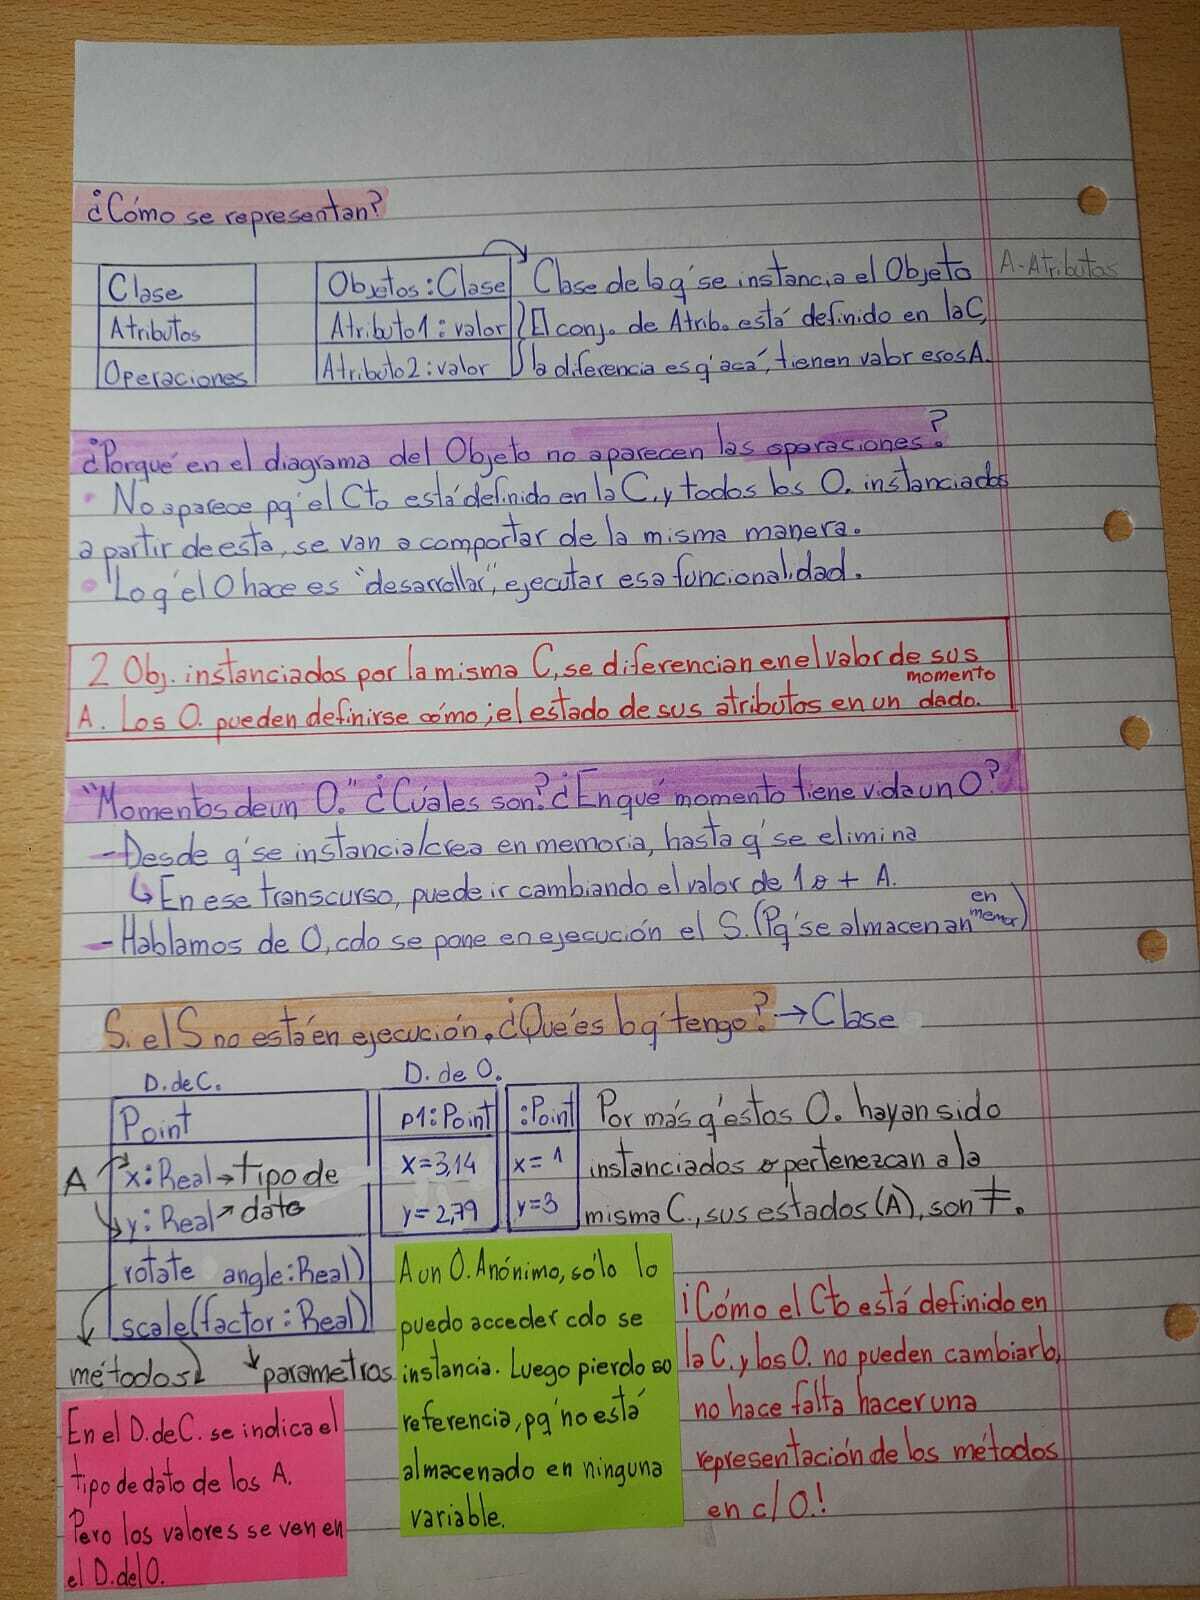 ¿Cómo se representan?
Clase
Atributos
Operaciones
Objetos : Clase
Atributo1 : valor
Atributo2 : valor
Clase de la q' se instancia el Objeto
El conj. de Atrib. está definido en la C,
la diferencia es q' acá, tienen valor esos A.
A-Atributos
¿Porqué en el diagrama del Objeto no aparecen las operaciones?
• No aparece pq' el Cto está definido en la C. y todos los O. instanciados
a partir de esta, se van a comportar de la misma manera.
• Lo q' el O hace es "desarrollar", ejecutar esa funcionalidad.
2 Obj. instanciados por la misma C, se diferencian en el valor de sus
A. Los O. pueden definirse cómo; el estado de sus atributos en un momento dado.
"Momentos de un O." ¿Cuáles son? ¿En qué momento tiene vida un O?
- Desde q' se instancia/crea en memoria, hasta q' se elimina
↳ En ese transcurso, puede ir cambiando el valor de 1 o + A.
- Hablamos de O, cdo se pone en ejecución el S. (Pq' se almacenan en memor)
Si el S no está en ejecución. ¿Qué es lo q' tengo? → Clase
D. de C.
Point
A
x : Real → tipo de
y : Real ↗ dato
rotate angle : Real)
scale (factor : Real)
métodos
parametros
D. de O.
p1 : Point
x = 3,14
y = 2,79
: Point
x = 1
y = 3
Por más q' estos O. hayan sido
instanciados o pertenezcan a la
misma C., sus estados (A), son ≠.
En el D. de C. se indica el
tipo de dato de los A.
Pero los valores se ven en
el D. del O.
A un O. Anónimo, sólo lo
puedo acceder cdo se
instancia. Luego pierdo so
referencia, pq' no está
almacenado en ninguna
variable.
¡Cómo el Cto está definido en
la C. y los O. no pueden cambiarlo,
no hace falta hacer una
representación de los métodos
en c/ O.!